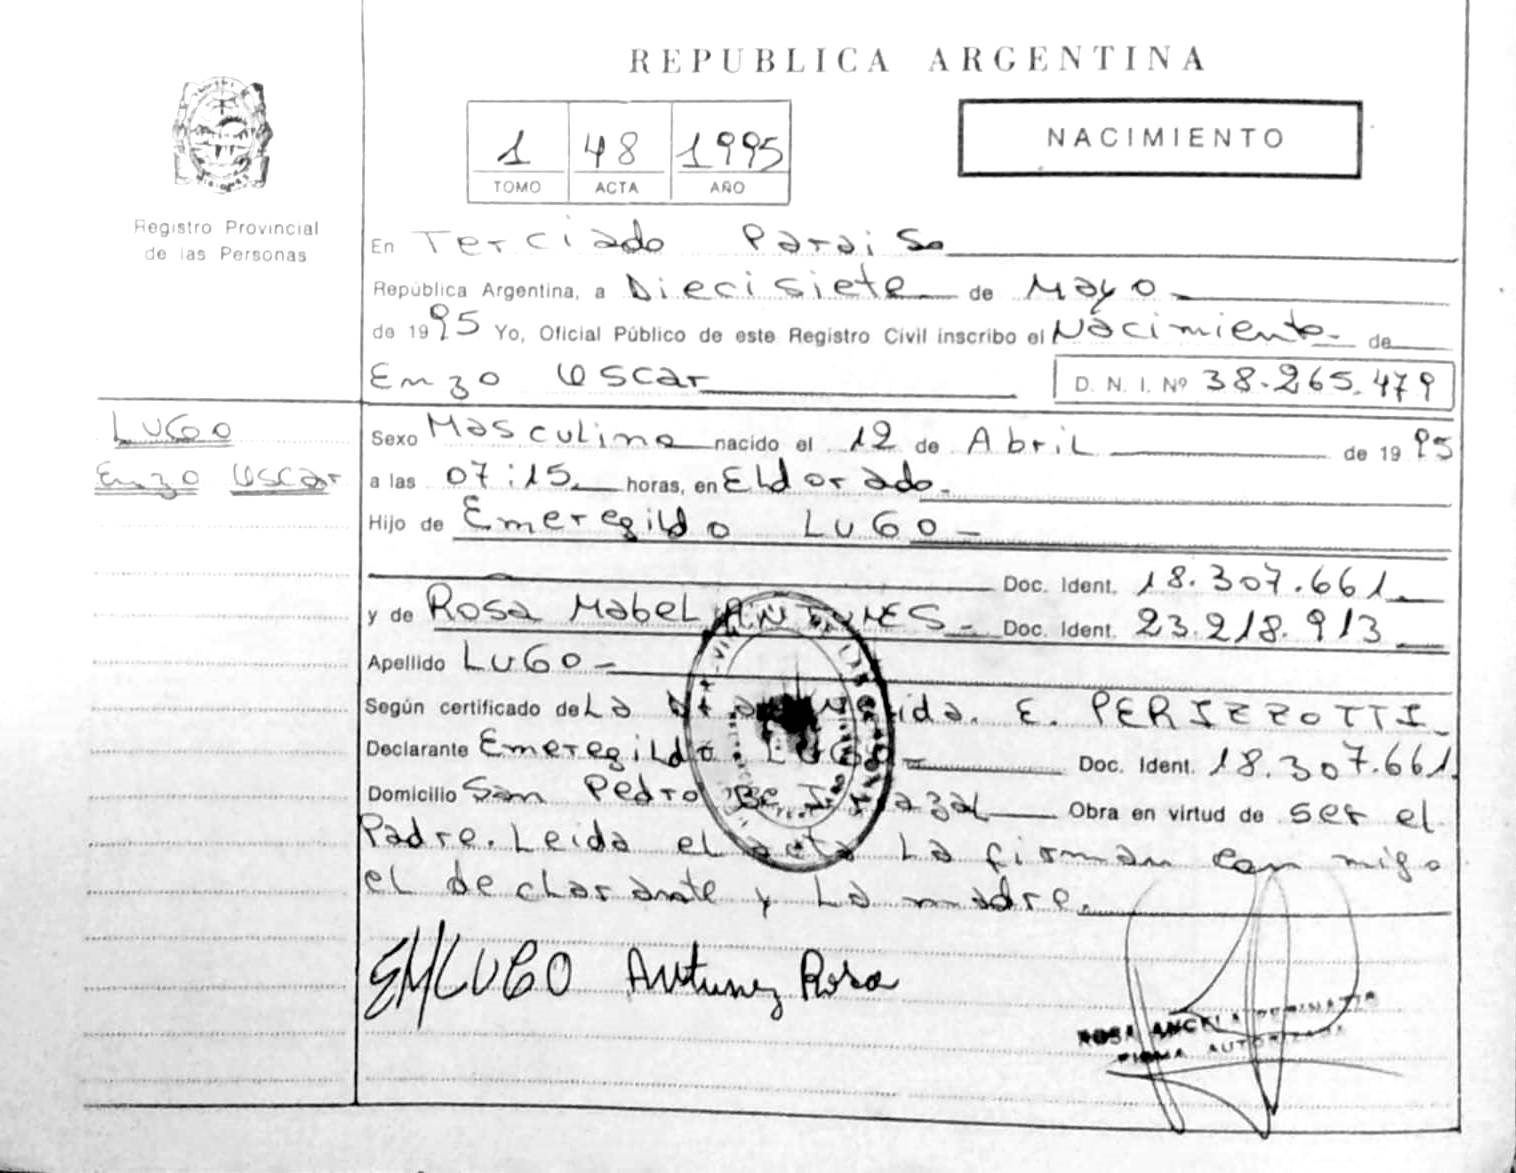 REPUBLICA ARGENTINA
NACIMIENTO
1 48 1995
TOMO ACTA AÑO
Registro Provincial
de las Personas
En Terciado Paraiso
República Argentina, a Diecisiete de Mayo
de 1995 Yo, Oficial Público de este Registro Civil inscribo el Nacimiento de
Enzo Oscar D. N. I. Nº 38.265.479
LUGO
Enzo Oscar
Sexo Masculino nacido el 12 de Abril de 1995
a las 07:15 horas, en Eldorado
Hijo de Emeregildo LUGO
Doc. Ident. 18.307.661
y de Rosa Mabel ANTUNES Doc. Ident. 23.218.913
Apellido LUGO
Según certificado de La E. PERIZZOTTI
Declarante Emeregildo LUGO Doc. Ident. 18.307.661
Domicilio San Pedro Obra en virtud de ser el
Padre. Leida el acta La firman con migo
el declarante y La madre.
EMLUGO Antunez Rosa
ROSA ANGELA
FIRMA AUTORIZADA